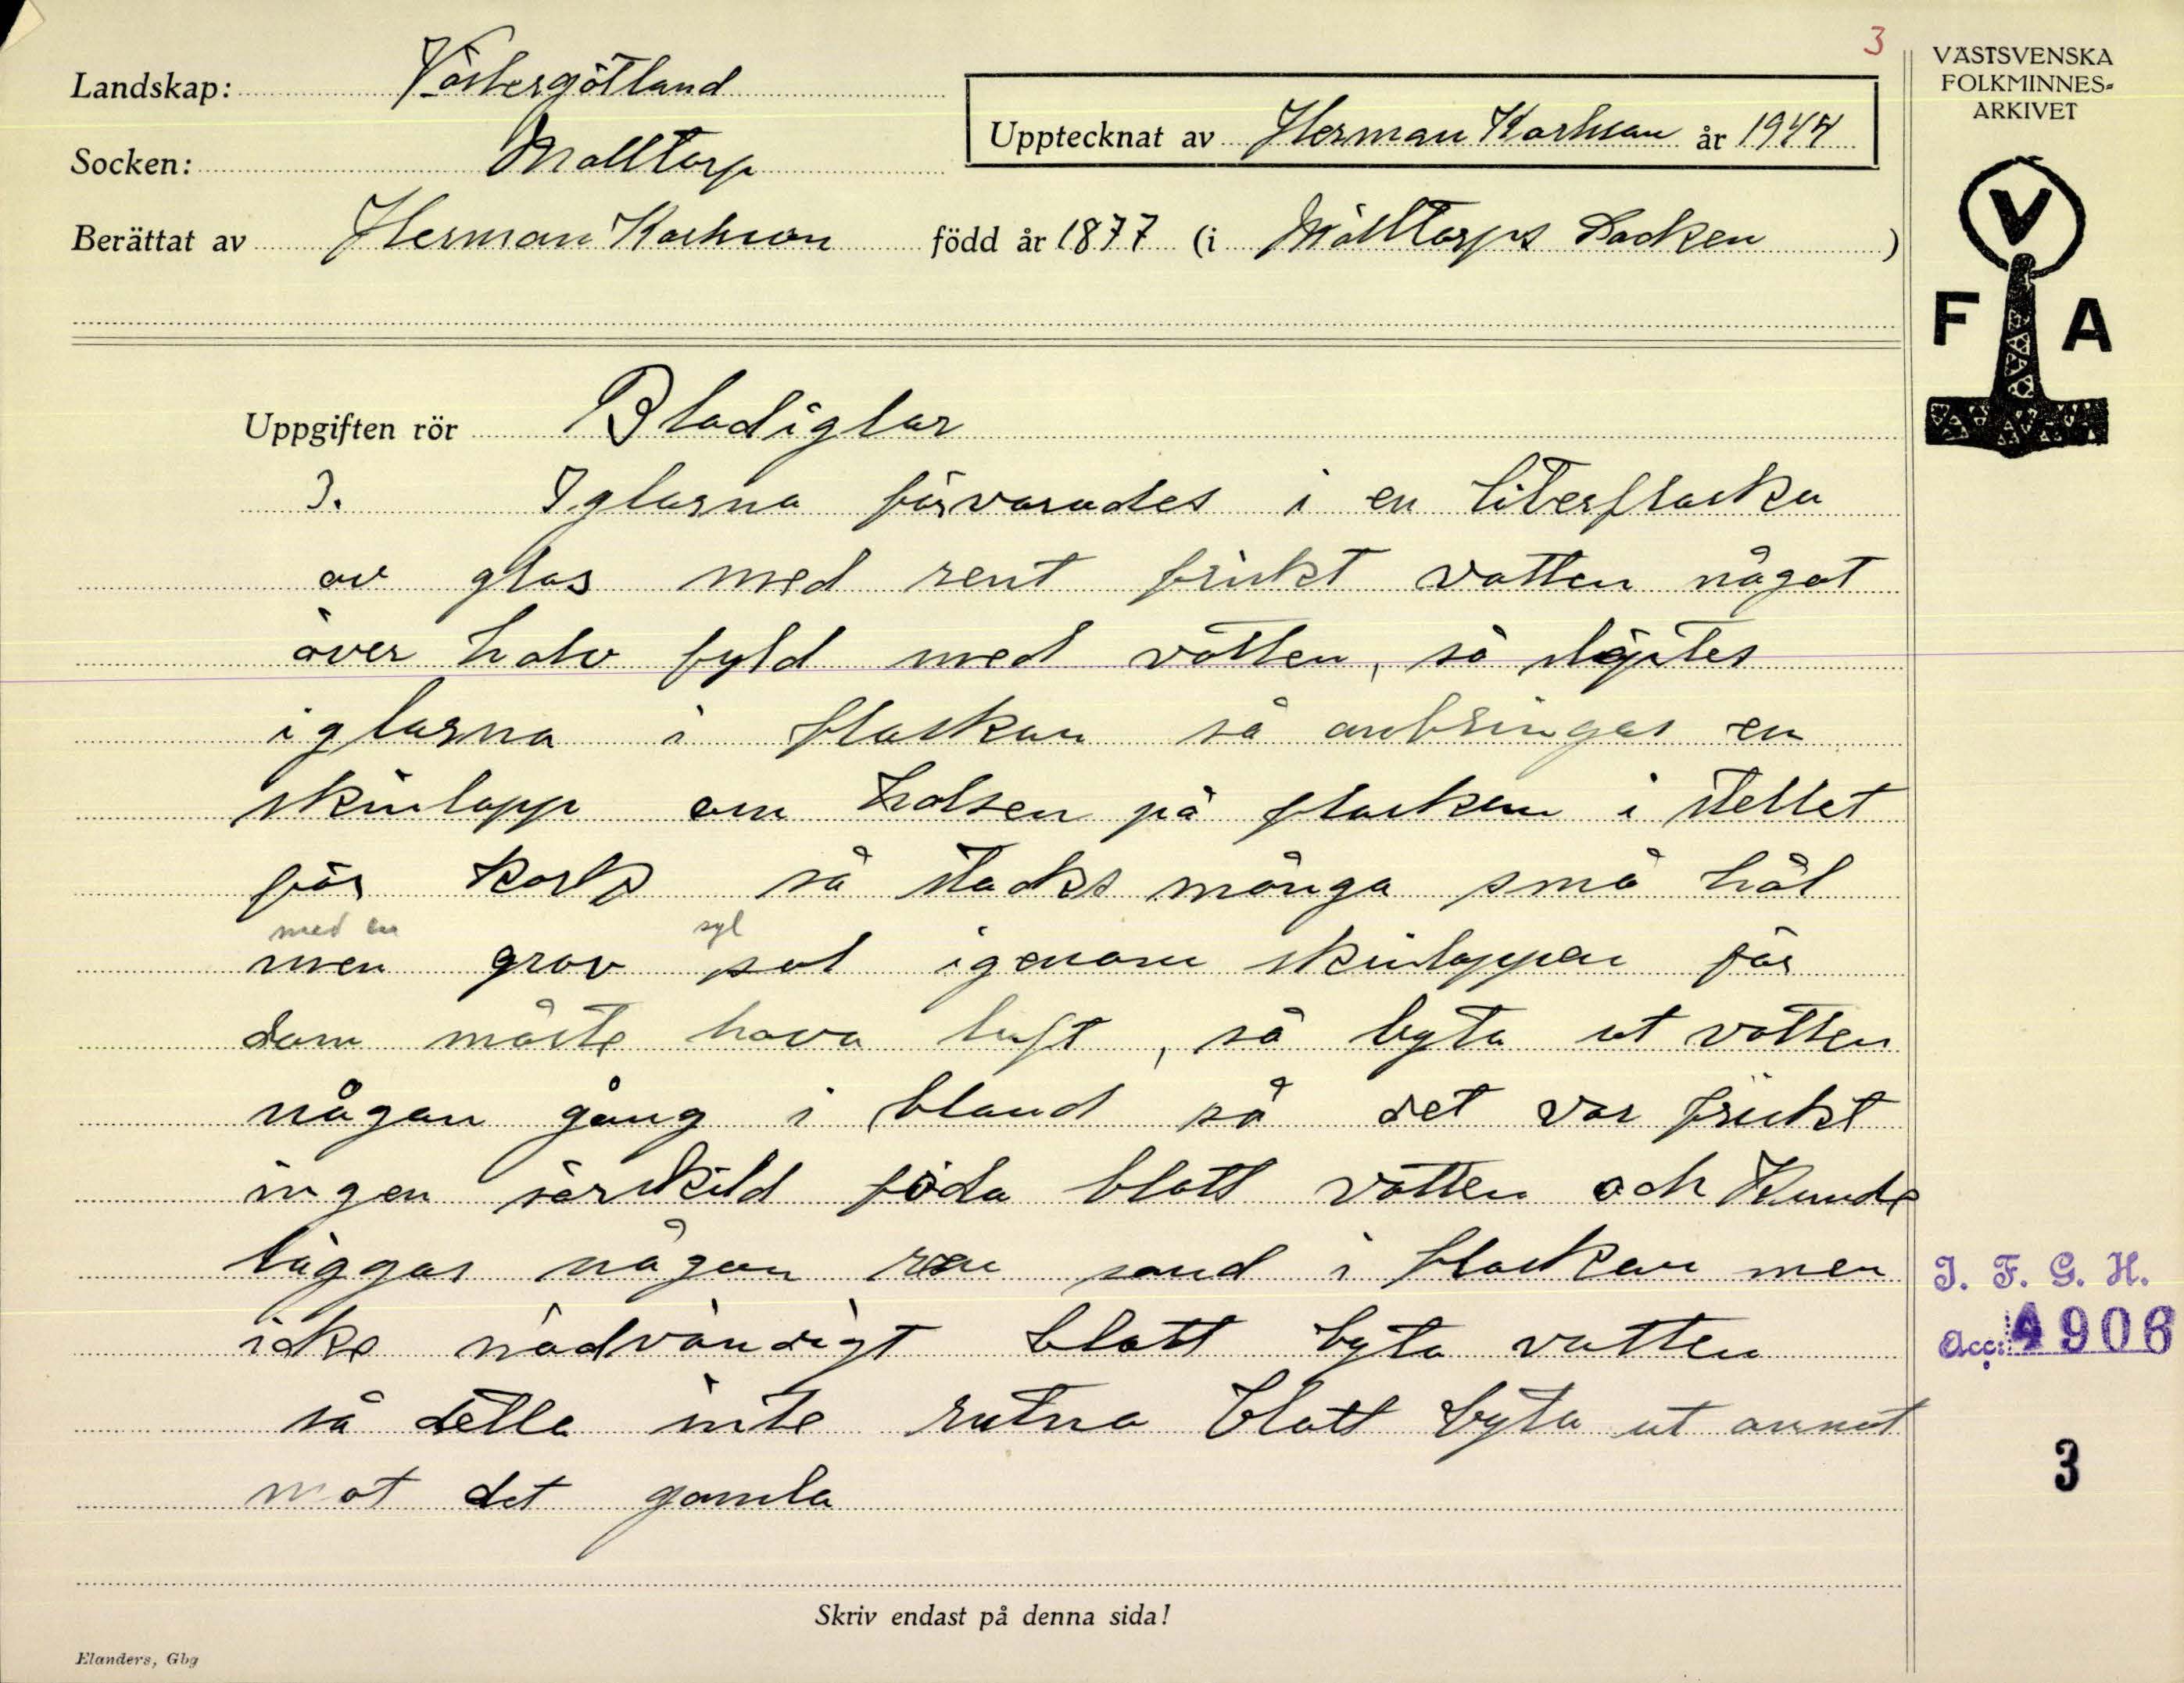 3
Landskap: Västergötland
Socken: Mölltorp
Upptecknat av Herman Karlsson år 1944
Berättat av Herman Karlsson född år 1877 (i Mölltorps Socken )
VÄSTSVENSKA
FOLKMINNES-
ARKIVET
V
F A
Uppgiften rör Blodiglar
3. Iglarna förvarades i en literflaska
av glas med rent friskt vatten något
över halv fyld med vatten, så släptes
iglarna i flaskan så anbringas en
skinlapp om halsen på flaskan i stellet
för kork så stacks många små hål
med en syl
men grov sol igenom skinlappen för
dom måste hava luft, så byta ut vatten
någon gång i bland så det var friskt
ingen särskild föda blott vatten och kunde
läggas någon ren sand i flaskan men
icke nödvändigt blott byta vatten
så detta inte rutna blott byta ut annat
mot det gamla
J. F. G. H.
Acc: 4906
3
Skriv endast på denna sida!
Elanders, Gbg